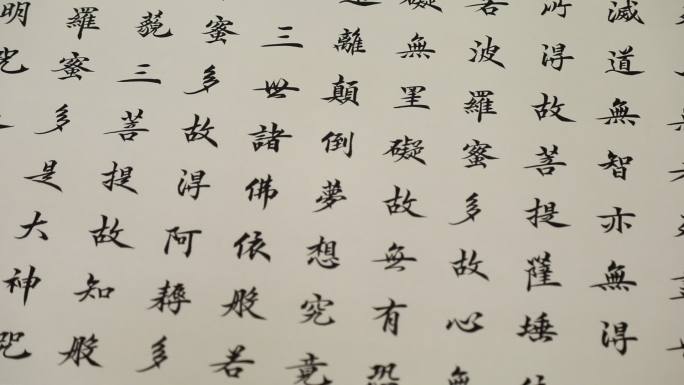 滅道無智亦無得
所得故菩提薩埵依
若波羅蜜多故心無
礙無罣礙故無有恐
離顛倒夢想究竟
三世諸佛依般若
蜜多故得阿耨多
藐三菩提故知般
羅蜜多是大神咒
明咒